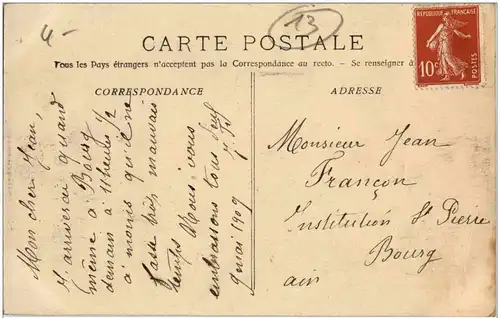 4-
13
CARTE POSTALE
Tous les Pays étrangers n'acceptent pas la Correspondance au recto. — Se renseigner à
REPUBLIQUE FRANÇAISE
10c
POSTES
CORRESPONDANCE
Mon cher Jean,
J'arriverai quand
même à Bourg
demain à 11 heures 1/2
à moins qu'il ne
fasse très mauvais
temps Nous vous
embrassons tous deux
9 mai 1909
ADRESSE
Monsieur Jean
Françon
Institution St Pierre
Bourg
ain